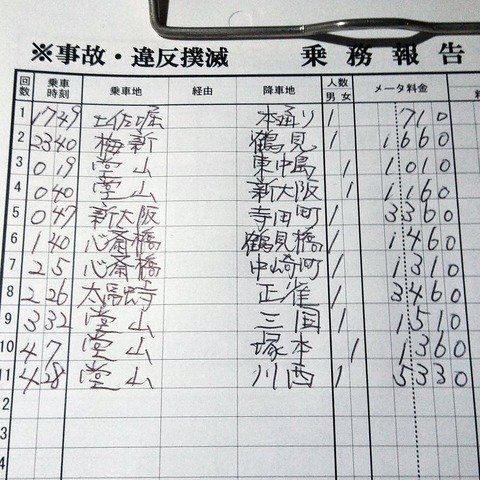 ※事故・違反撲滅 乗務報告
回数 乗車時刻 乗車地 経由 降車地 人数 男 女 メータ料金
1 1749 土佐堀 本通り 1 710
2 2340 梅新 鶴見 1 1660
3 0 19 堂山 東中島 1 1010
4 0 40 堂山 新大阪 1 1160
5 0 47 新大阪 寺田町 1 3360
6 1 40 心斎橋 鶴見橋 1 1460
7 2 5 心斎橋 中崎町 1 1310
8 2 26 太融寺 正雀 1 3460
9 3 32 堂山 三国 1 1510
10 4 7 堂山 塚本 1 1360
11 4 28 堂山 川西 1 5330
2
3
4